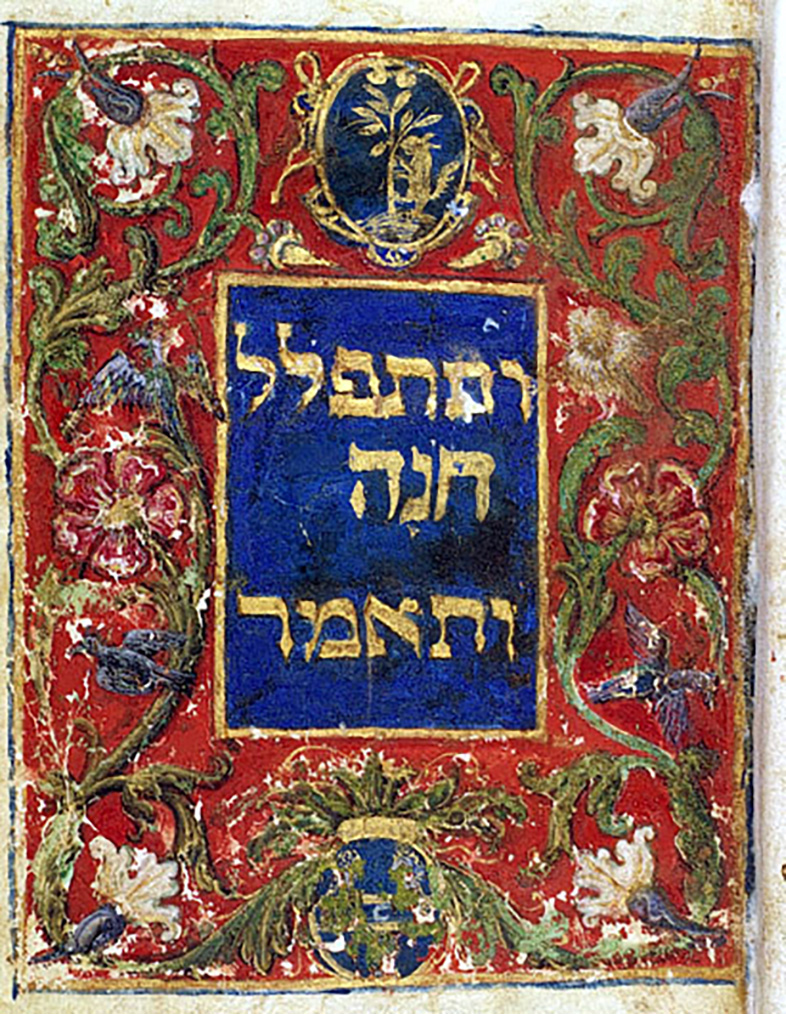 ותתפלל
חנה
ותאמר